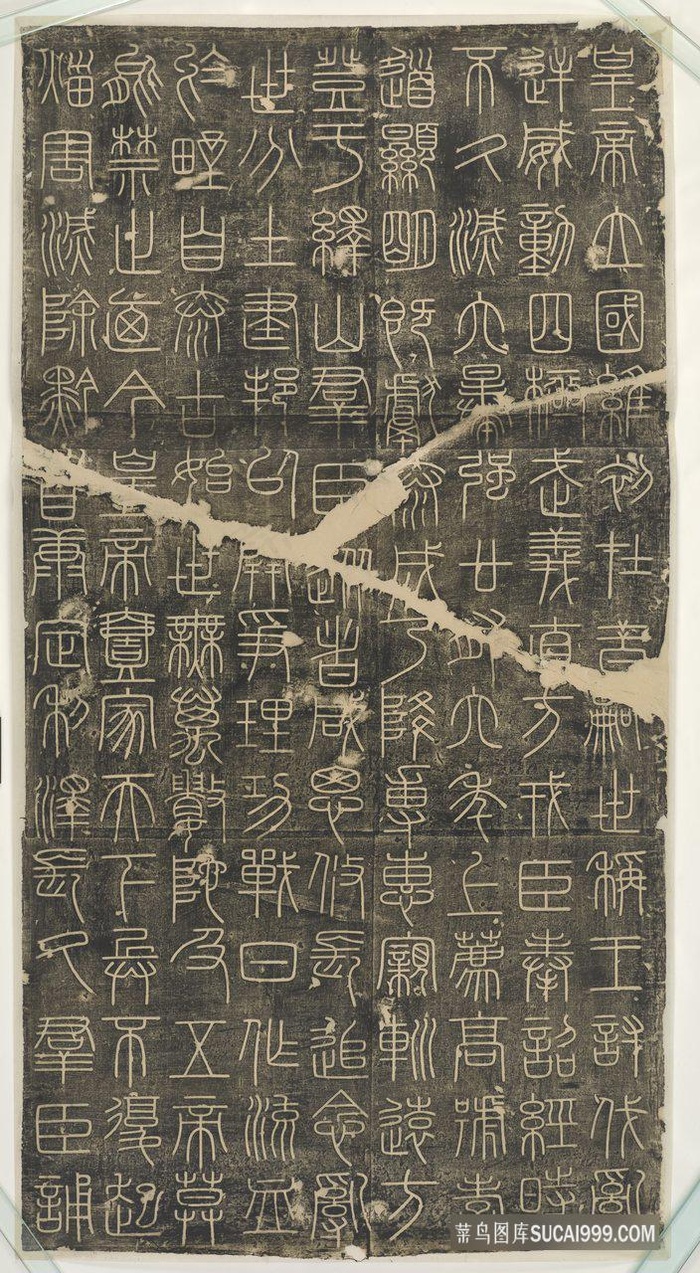 皇帝立國維初在昔嗣世稱王討伐亂
逆威動四極武義直方戎臣奉詔經時
不久滅六暴強廿有六年上薦高號孝
道顯明既獻泰成乃降專惠親巡遠方
登于繹山群臣從者咸思攸長追念亂
世分土建邦以開爭理功戰日作流血
於野自泰古始世無萬數陀及五帝莫
能禁止迺今皇帝壹家天下兵不復起
災害滅除黔首康定利澤長久群臣誦
菜鸟图库SUCAI999.COM